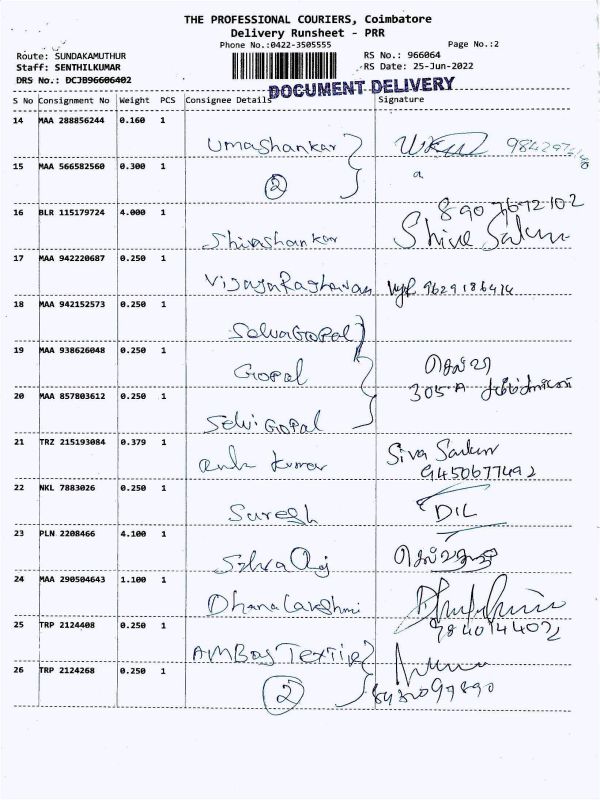 THE PROFESSIONAL COURIERS, Coimbatore
Delivery Runsheet - PRR
Phone No.:0422-3505555
Page No.:2
Route: SUNDAKAMUTHUR
RS No.: 966064
Staff: SENTHILKUMAR
RS Date: 25-Jun-2022
DRS No.: DCJB96606402
DOCUMENT DELIVERY
S No Consignment No Weight PCS Consignee Details Signature
14 MAA 288856244 0.160 1
Umashankar
15 MAA 566582560 0.300 1
2
16 BLR 115179724 4.000 1
Shivashankar
17 MAA 942220687 0.250 1
VijayaRaghavan 9629186414
18 MAA 942152573 0.250 1
SelvaGopal
19 MAA 938626048 0.250 1
Gopal
305-A
20 MAA 857803612 0.250 1
Selvi Gopal
21 TRZ 215193084 0.379 1
Kumar
9450677492
22 NKL 7883026 0.250 1
Suresh
23 PLN 2208466 4.100 1
24 MAA 290504643 1.100 1
DhanaLakshmi
25 TRP 2124408 0.250 1
26 TRP 2124268 0.250 1
2